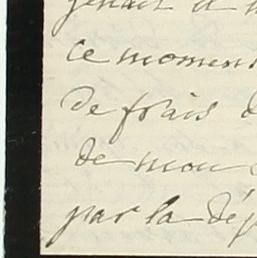 ce moment
de frais d
de mon
par la dép